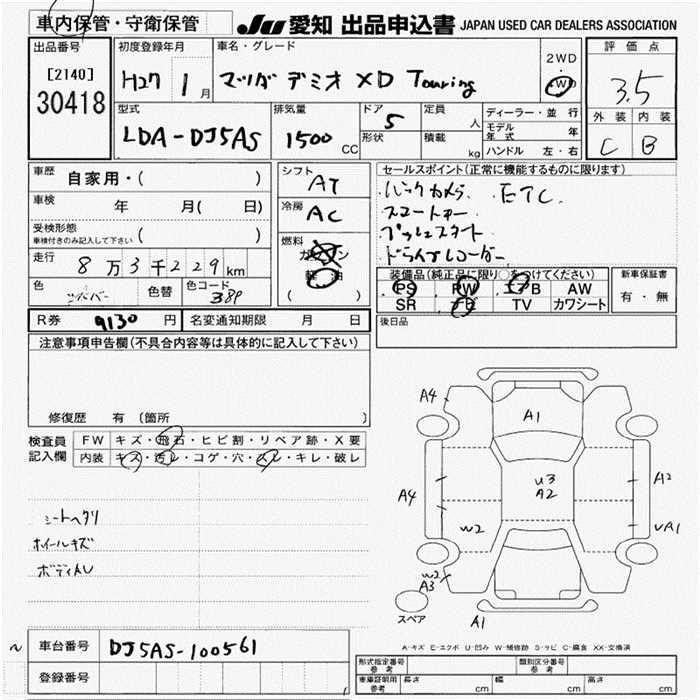 車内保管・守衛保管
JU 愛知 出品申込書 JAPAN USED CAR DEALERS ASSOCIATION
出品番号
[2140]
30418
初度登録年月
H27 1月
車名・グレード
マツダ デミオ XD Touring
2WD
4WD
評価点
3.5
外装 内装
C B
型式
LDA-DJ5AS
排気量
1500 CC
ドア
5
形状
定員 人
積載 kg
ディーラー・並行
モデル年式 年
ハンドル 左・右
車歴
自家用・( )
車検 年 月( 日)
受検形態
車検付きのみ記入して下さい ( )
走行 8万3千229km
色 シルバー 色替 色コード 38P
シフト AT
冷房 AC
燃料 ガソリン
軽油
( )
セールスポイント(正常に機能するものに限ります)
・バックカメラ ETC
・スマートキー
・プッシュスタート
・ドライブレコーダー
装備品(純正品に限り○をつけてください)
PS PW エアB AW
SR TV カワシート
新車保証書
有・無
R券 9130円
名変通知期限 月 日
後日品
注意事項申告欄(不具合内容等は具体的に記入して下さい)
修復歴 有(箇所 )
検査員
記入欄
FW キズ・飛石・ヒビ割・リペア跡・X要
内装 キズ・汚レ・コゲ・穴・スレ・キレ・破レ
シートヘタリ
ホイールキズ
ボディAU
A4
A1
A4
U3
A2
A2
W2
UA1
W2
A3
A1
スペア
A-キズ E-エクボ U-凹み W-補修跡 S-サビ C-腐食 XX-交換済
車台番号 DJ5AS-100561
登録番号
形式指定番号
参考
類別区分番号
参考
車庫証明用
参考
長さ cm 幅 cm 高さ cm